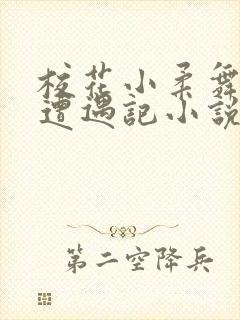 校花小柔舞
遭遇记小说
第二空降兵